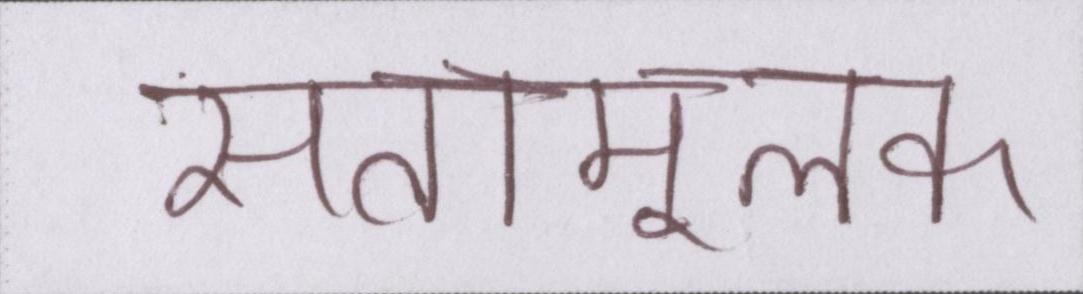 सतामूलक